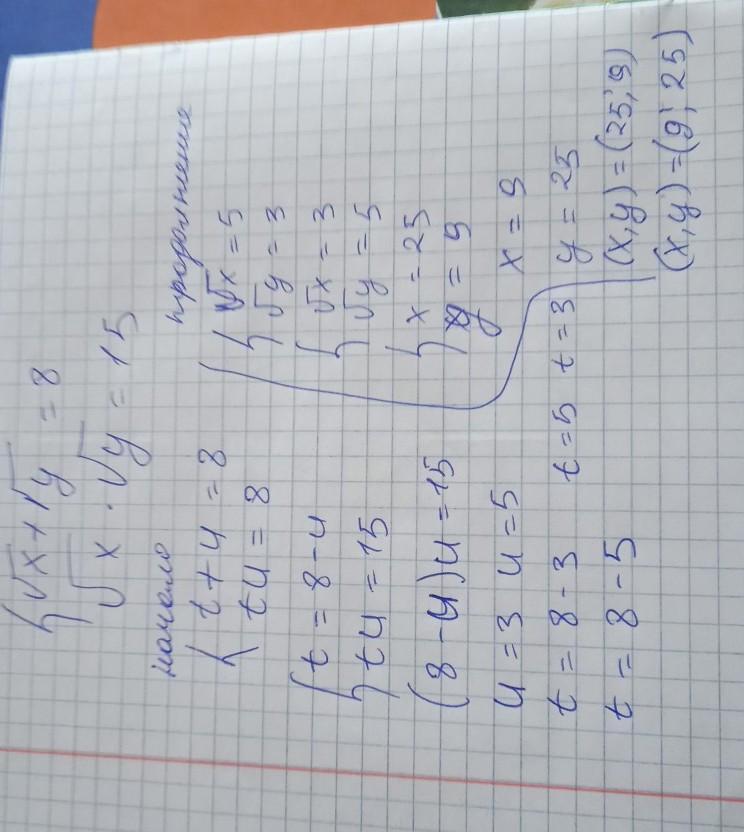 { √x + √y = 8
√x · √y = 15
начало
{ t + u = 8
tu = 8
{ t = 8 - u
tu = 15
(8 - u)u = 15
u = 3 u = 5
t = 8 - 3 t = 5 t = 3
t = 8 - 5
продолжение
{ √x = 5
√y = 3
{ √x = 3
√y = 5
{ x = 25
y = 9
x = 9
y = 25
(x, y) = (25; 9)
(x, y) = (9; 25)